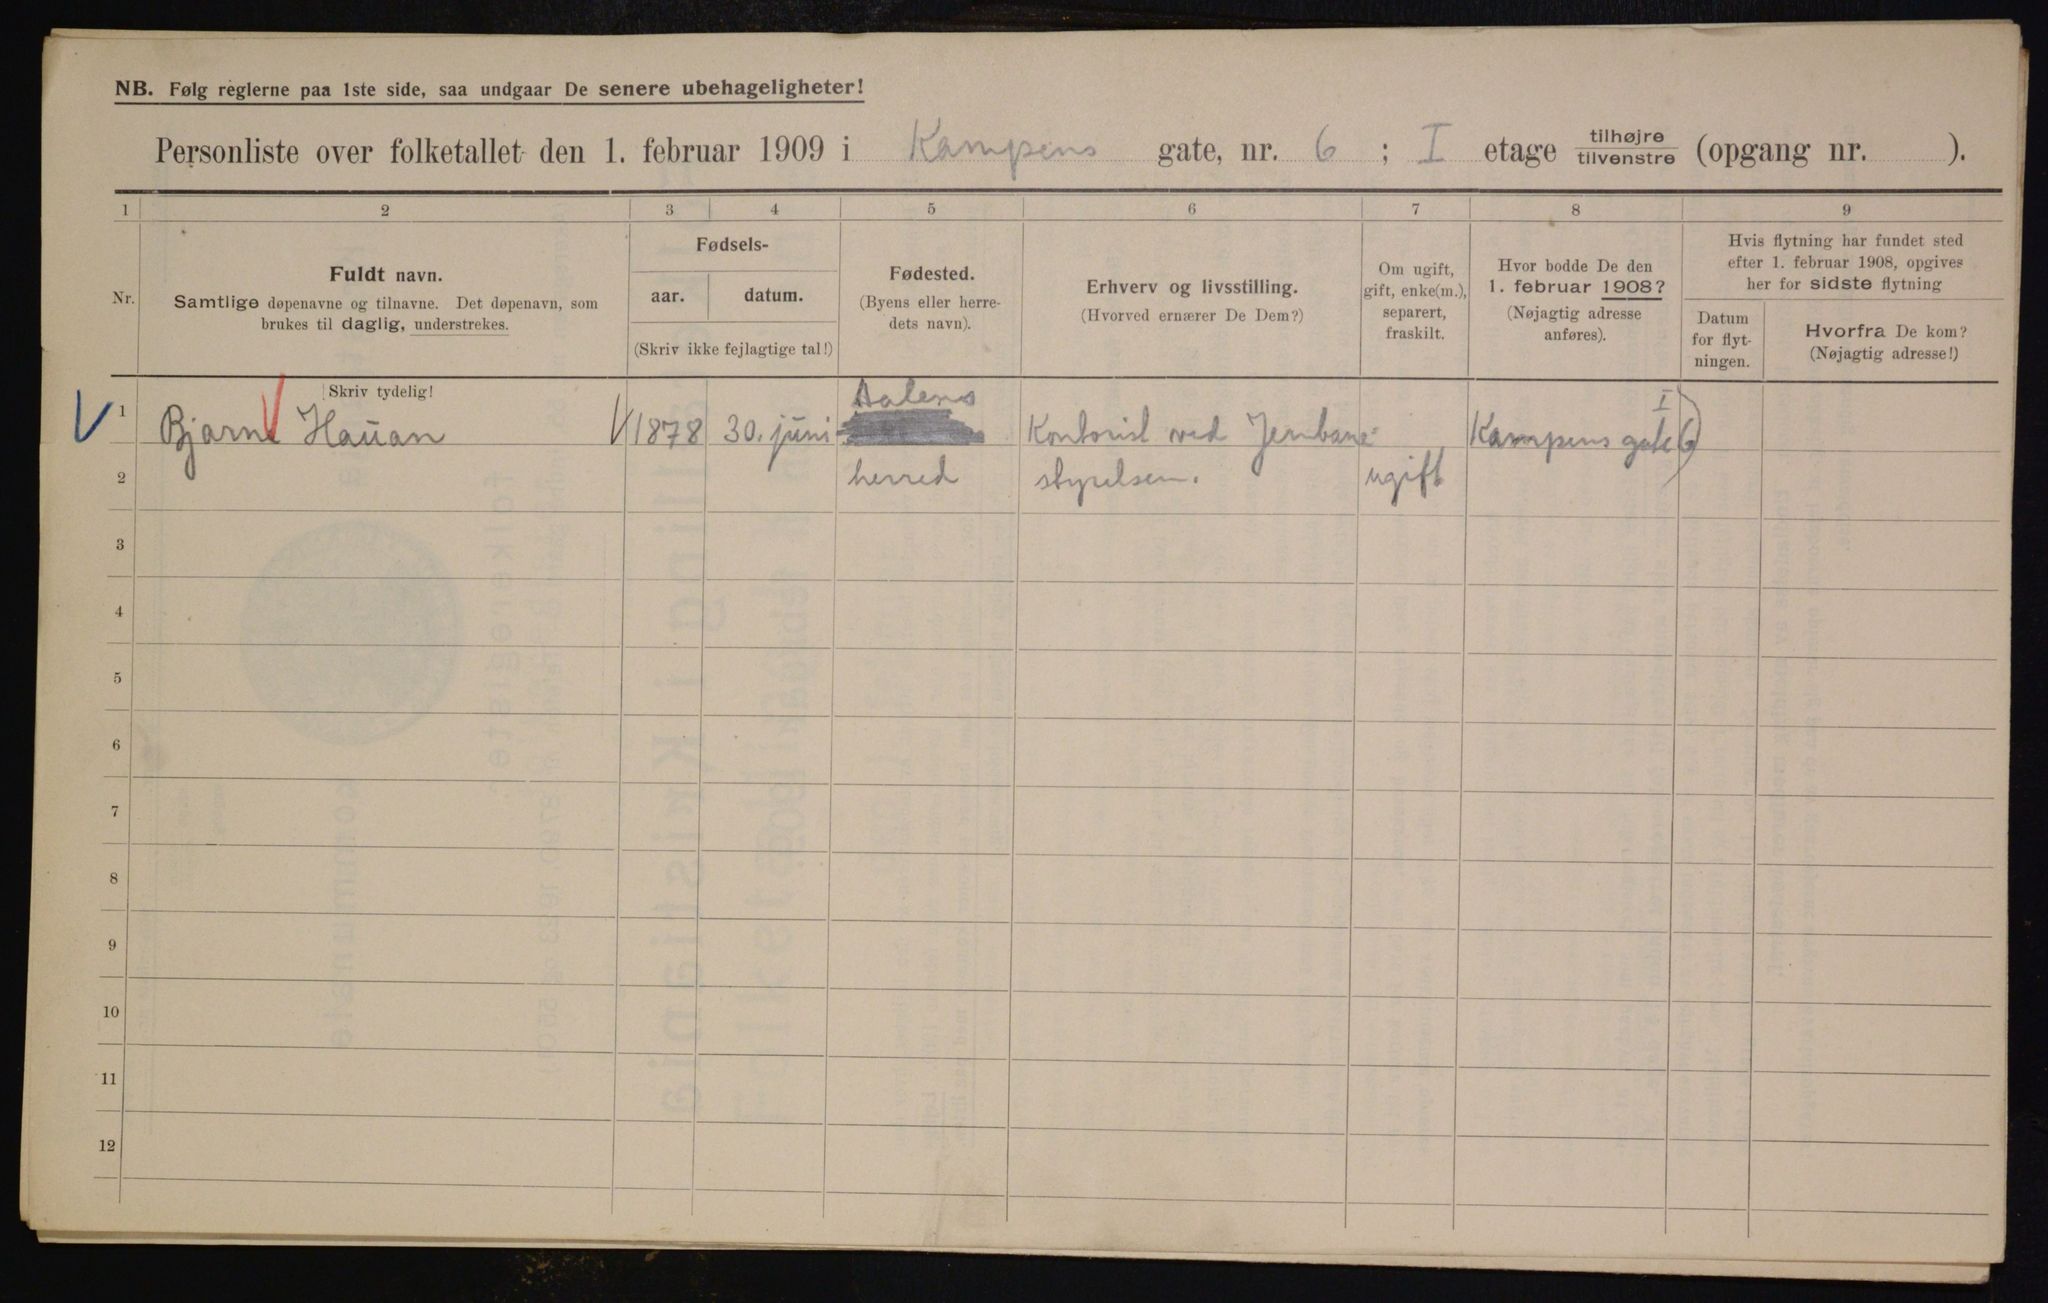 NB. Følg reglerne paa 1ste side, saa undgaar De senere ubehageligheter!
Personliste over folketallet den 1. februar 1909 i Kampens gate, nr. 6 ; I etage tilhøjre tilvenstre (opgang nr. ).
1 2 3 4 5 6 7 8 9
Nr.
Fuldt navn.
Samtlige døpenavne og tilnavne. Det døpenavn, som
brukes til daglig, understrekes.
Fødsels-
aar. datum.
(Skriv ikke fejlagtige tal!)
Fødested.
(Byens eller herre-
dets navn).
Erhverv og livsstilling.
(Hvorved ernærer De Dem?)
Om ugift,
gift, enke(m.),
separert,
fraskilt.
Hvor bodde De den
1. februar 1908?
(Nøjagtig adresse
anføres).
Hvis flytning har fundet sted
efter 1. februar 1908, opgives
her for sidste flytning
Datum
for flyt-
ningen.
Hvorfra De kom?
(Nøjagtig adresse!)
Skriv tydelig!
1 Bjarne Hauan 1878 30. juni Aalens
herred
Kontorist ved Jernbane-
styrelsen.
ugift
I
Kampens gate 6
2
3
4
5
6
7
8
9
10
11
12